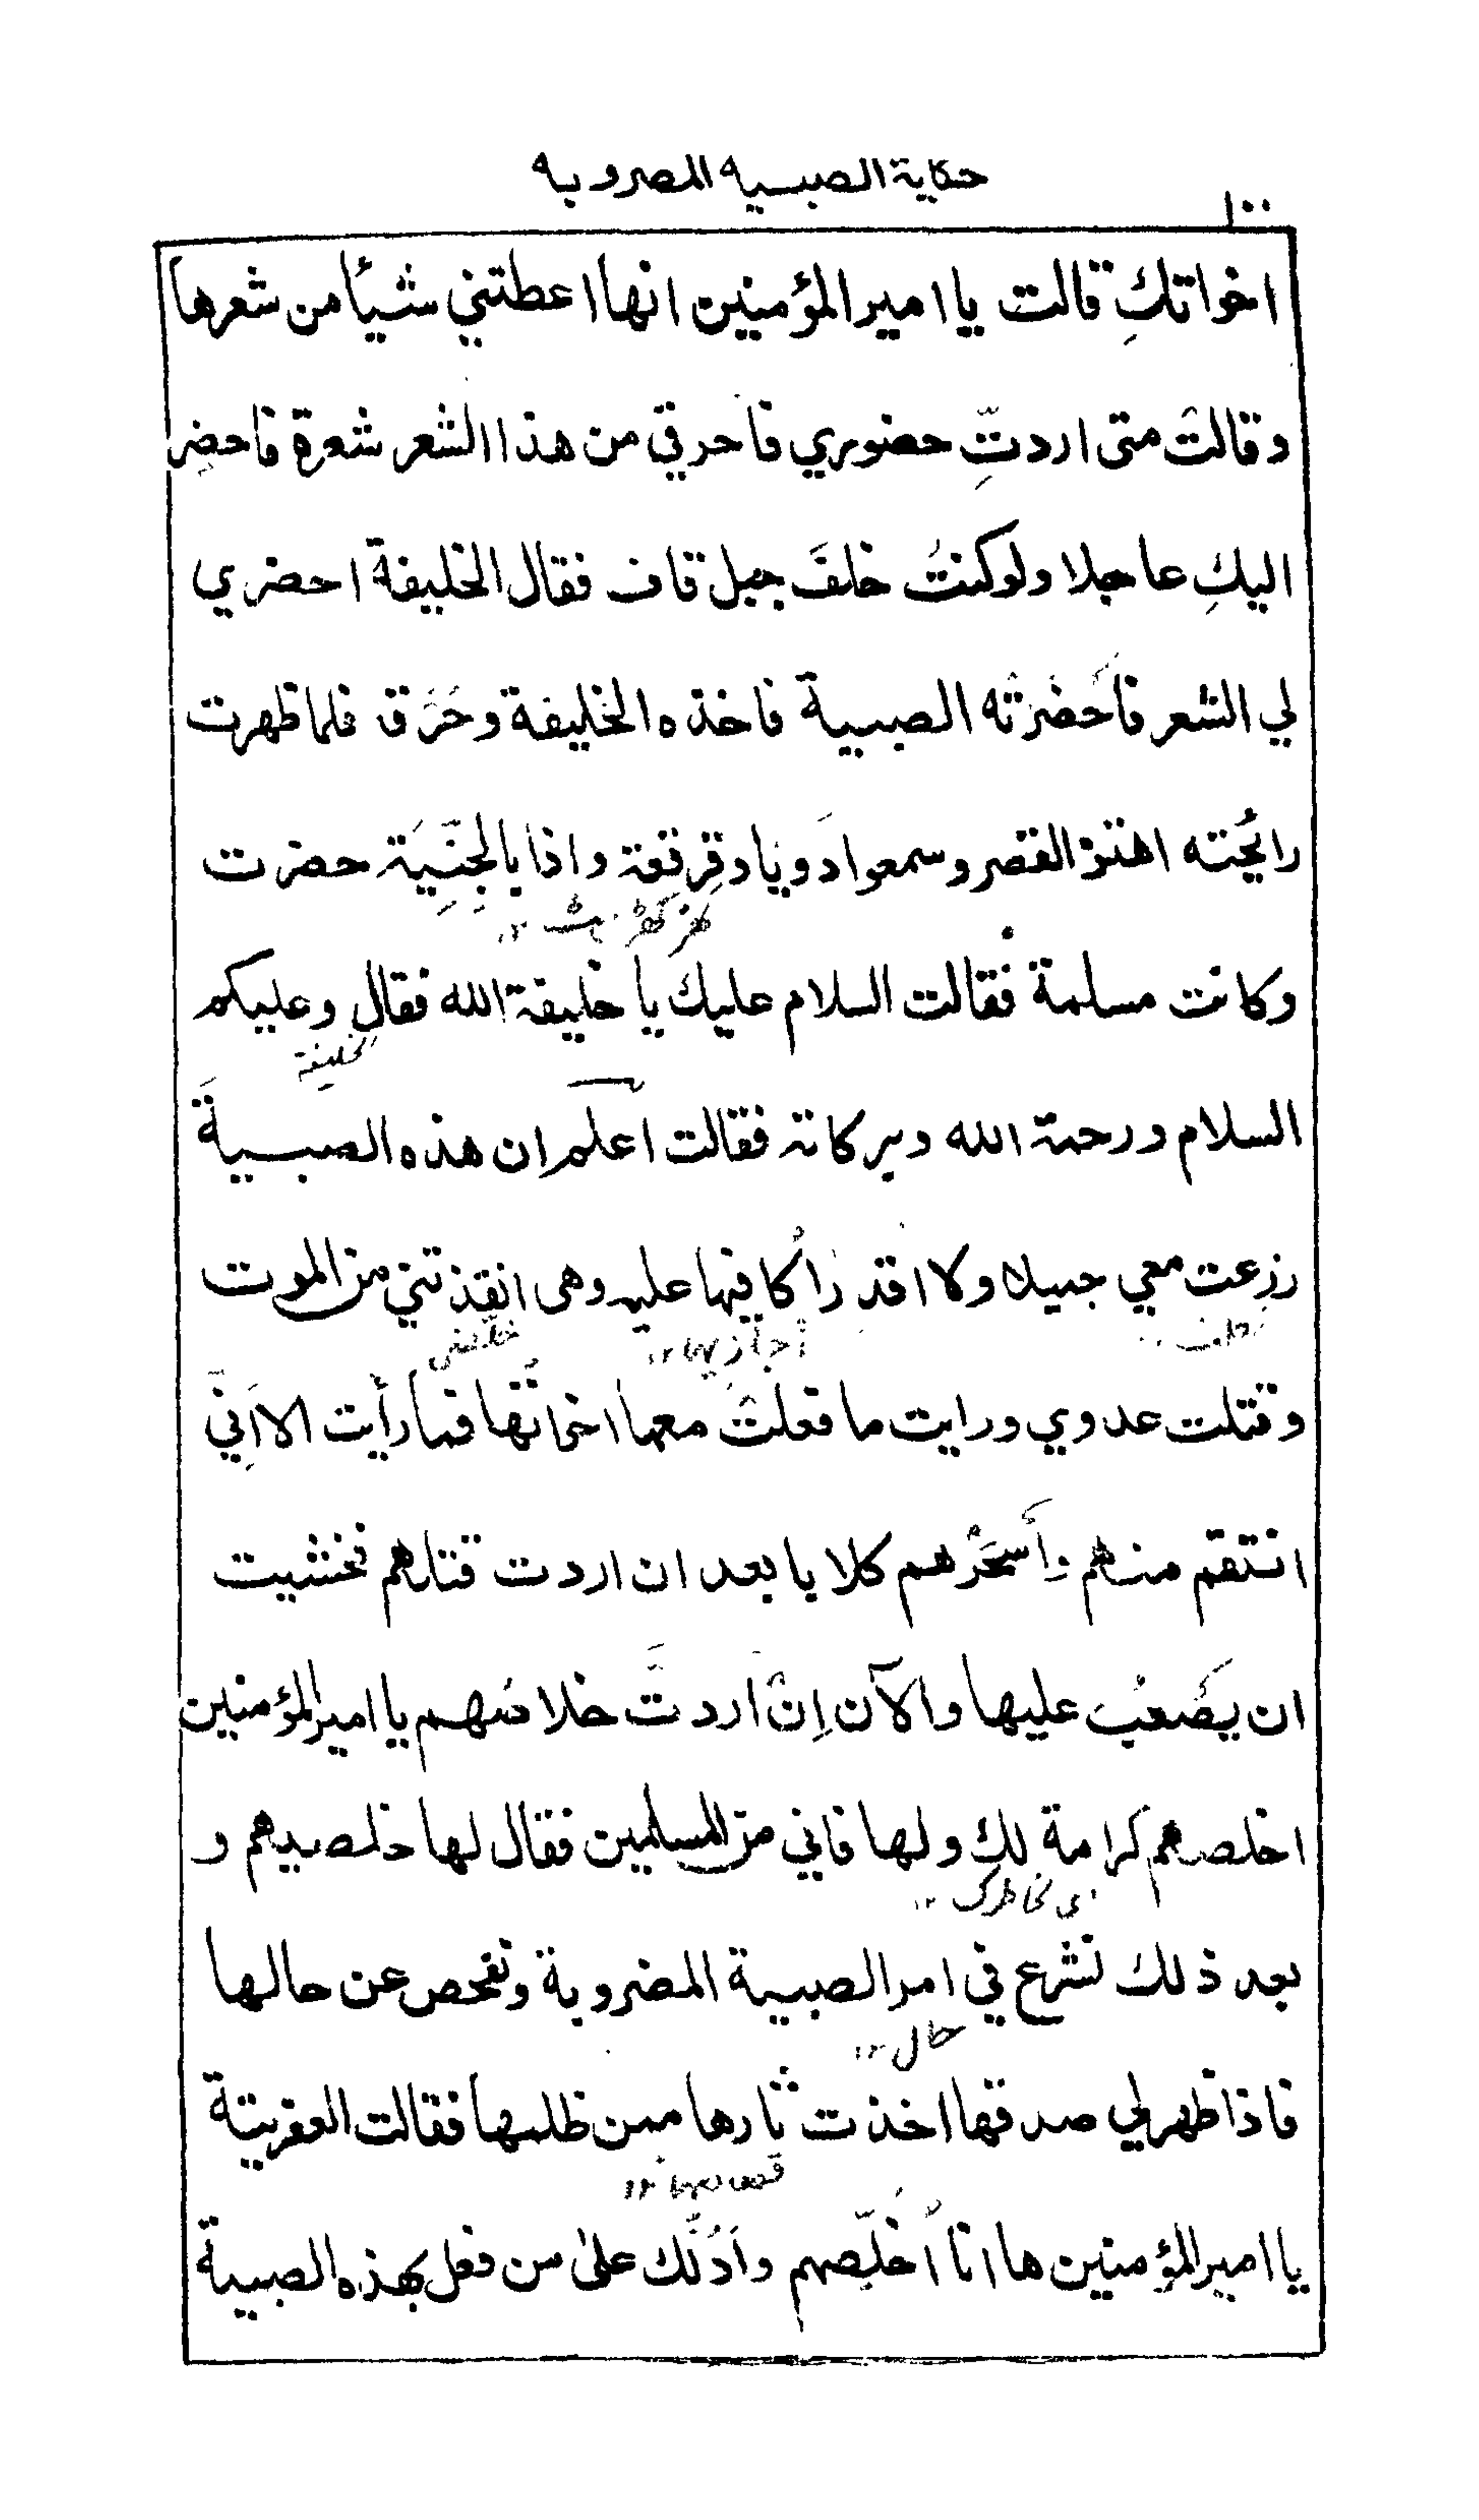 حكاية الصبيه المضروبه
١٠٠
اخواتكِ قالت يا امير المؤمنين انها اعطتني شيأ من شعرها
وقالت متى اردتِّ حضوري فأحرقي من هذا الشعر شعرة فاحضر
اليكِ عاجلا ولو كنتُ خلفَ جبل قاف فقال الخليفة احضري
لي الشعر فأَحضَرَتْه الصبية فاخذه الخليفة وحَرَق فلما ظهرت
رايُحته اهتز القصر وسمعوا دَويا وقرقعة واذا بالجِنِّيَة حضرت
وكانت مسلمة فقالت السلام عليك يا خليفة الله فقال وعليكم
الخليفة
السلام ورحمة الله وبركاته فقالت اعلم ان هذه الصبيةَ
زرعت معي جميلا ولا اقدر اُكافيها عليه وهى انقذتني من الموت
خلصتني
وقتلت عدوي ورايت ما فعلتْ معها اخواتُها فما رأيت الا اَنِّي
انتقم منهم وأَسْحَرُهم كلابا بعد ان اردت قتلهم فخشيت
ان يَصْعُب عليها والآن اِنْ اردتَّ خلاصَهم يا امير المؤمنين
اخلصهم كرامة لك ولها فاني من المسلمين فقال لها خلصيهم و
بعد ذلك نشرع في امر الصبية المضروبة ونفحص عن حالها
حال
فاذا ظهر لي صدقها اخذت ثارها ممن ظلمها فقالت العفريتة
يا امير المؤمنين ها انا اُخَلِّصهم واَدُلُّك على من فعل بهذه الصبية